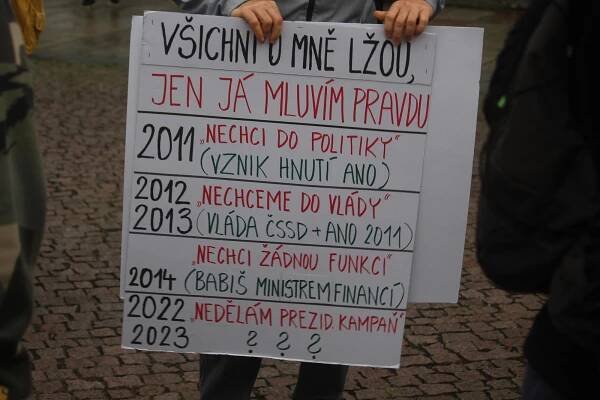 VŠICHNI O MNĚ LŽOU,
JEN JÁ MLUVÍM PRAVDU
2011 „NECHCI DO POLITIKY"
(VZNIK HNUTÍ ANO)
2012 „NECHCEME DO VLÁDY"
2013 (VLÁDA ČSSD + ANO 2011)
„NECHCI ŽÁDNOU FUNKCI"
2014 (BABIŠ MINISTREM FINANCÍ)
2022 „NEDĚLÁM PREZID. KAMPAŇ"
2023 ? ? ?